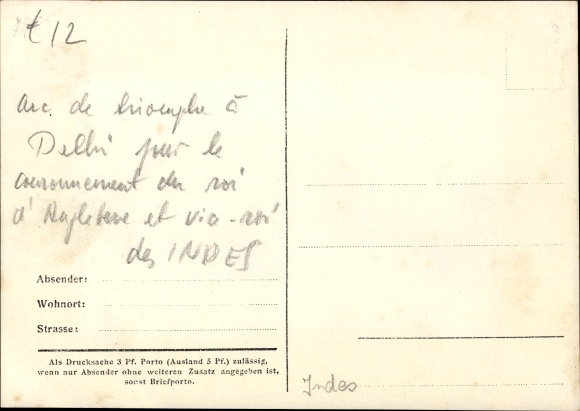 €12
Arc. de triomphe à
Delhi pour le
couronnement du roi
d'Angleterre et vice-roi
des INDES
Absender:
Wohnort:
Strasse:
Als Drucksache 3 Pf. Porto (Ausland 5 Pf.) zulässig,
wenn nur Absender ohne weiteren Zusatz angegeben ist,
sonst Briefporto.
Indes